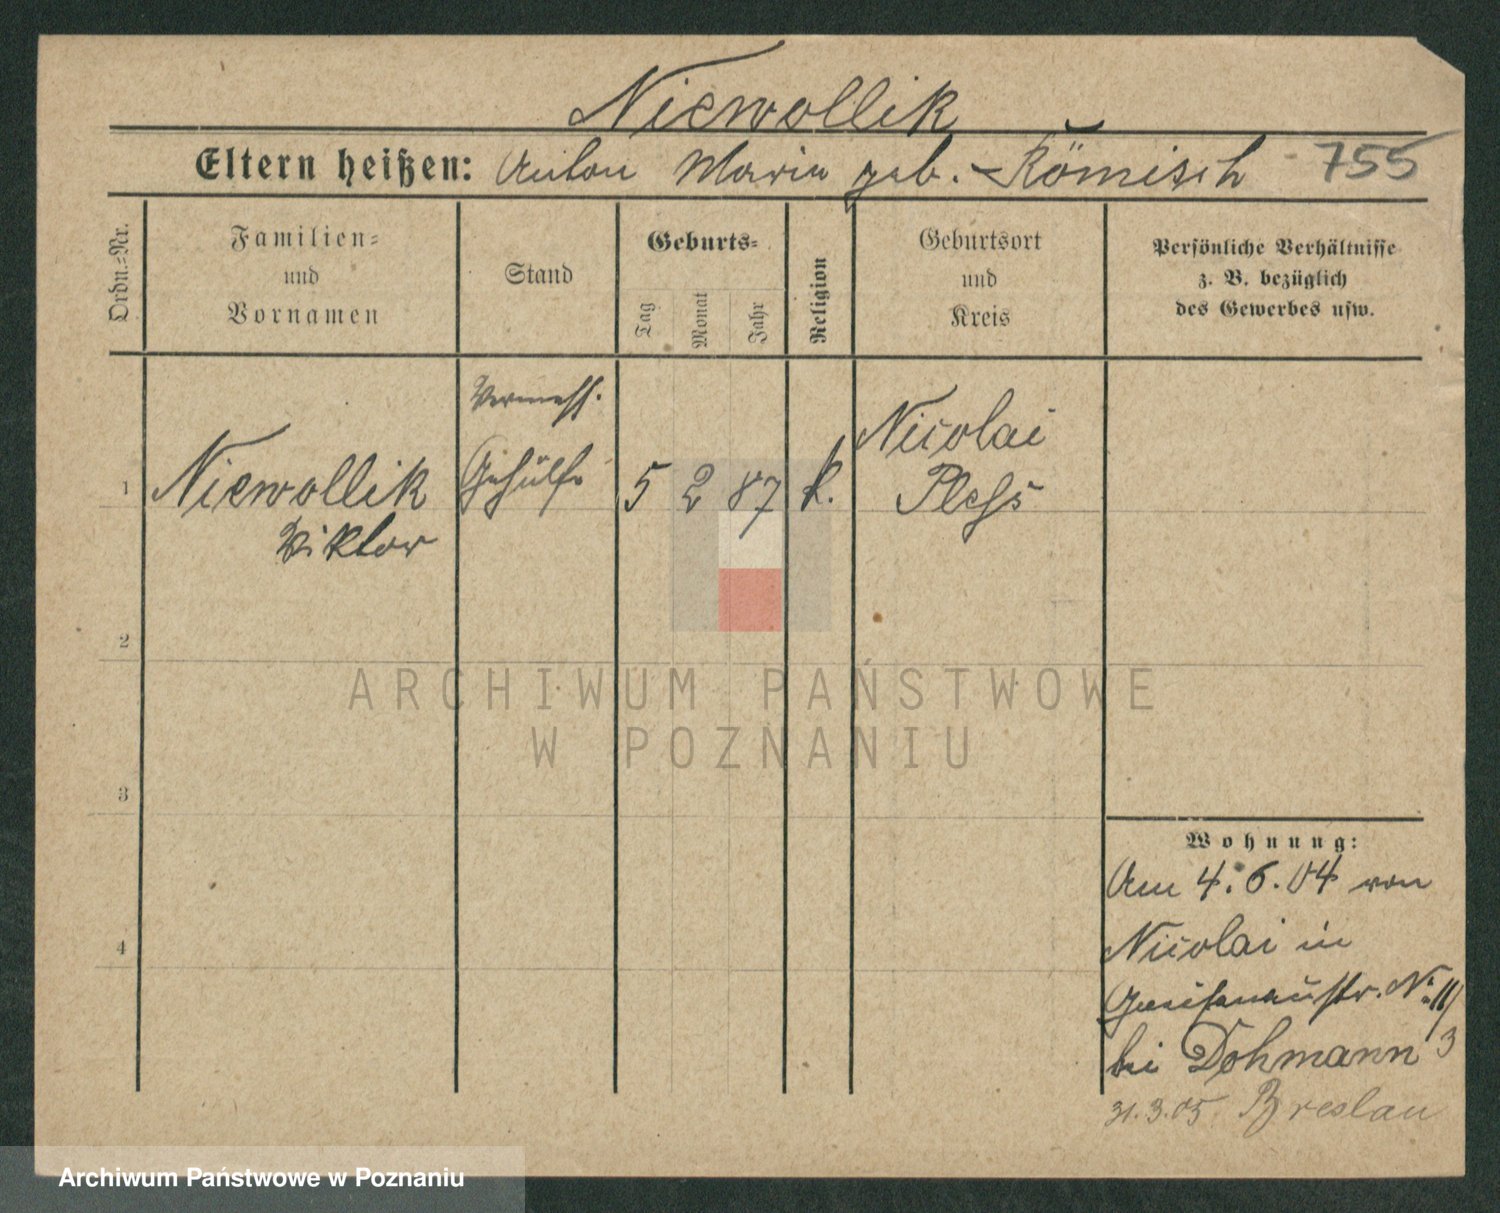 Niewollik
Eltern heißen: Anton Maria geb. Römisch 755
Ordn.-Nr.
Familien-
und
Vornamen
Stand
Geburts-
Tag
Monat
Jahr
Religion
Geburtsort
und
Kreis
Persönliche Verhältnisse
z. B. bezüglich
des Gewerbes usw.
1
Niewollik
Viktor
Vermess.
Gehülfe
5 2 87
k.
Nicolai
Pless
2
3
4
Wohnung:
Am 4.6.04 von
Nicolai in
Gneisenaustr. No 11/
3
bei Dohmann
31.3.05. Breslau
ARCHIWUM PAŃSTWOWE
W POZNANIU
Archiwum Państwowe w Poznaniu